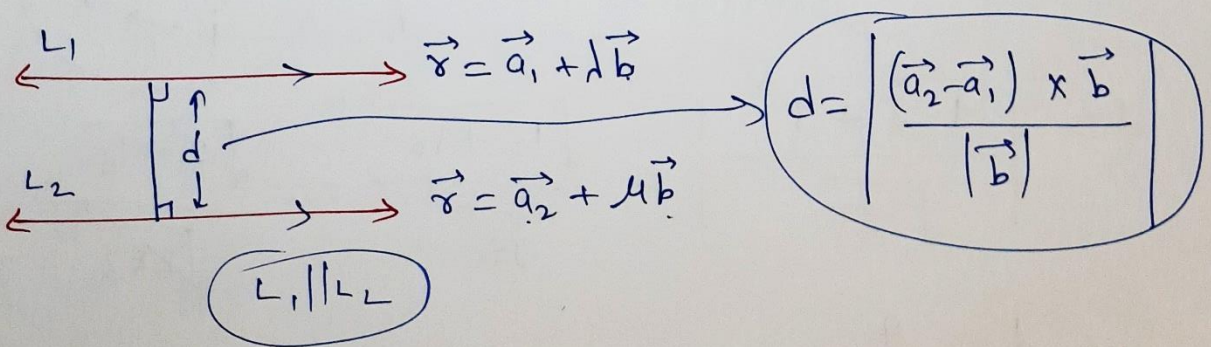 L₁
r⃗ = a⃗₁ + λb⃗
d = |(a⃗₂ - a⃗₁) × b⃗ / |b⃗||
d
L₂
r⃗ = a⃗₂ + μb⃗
L₁ || L₂